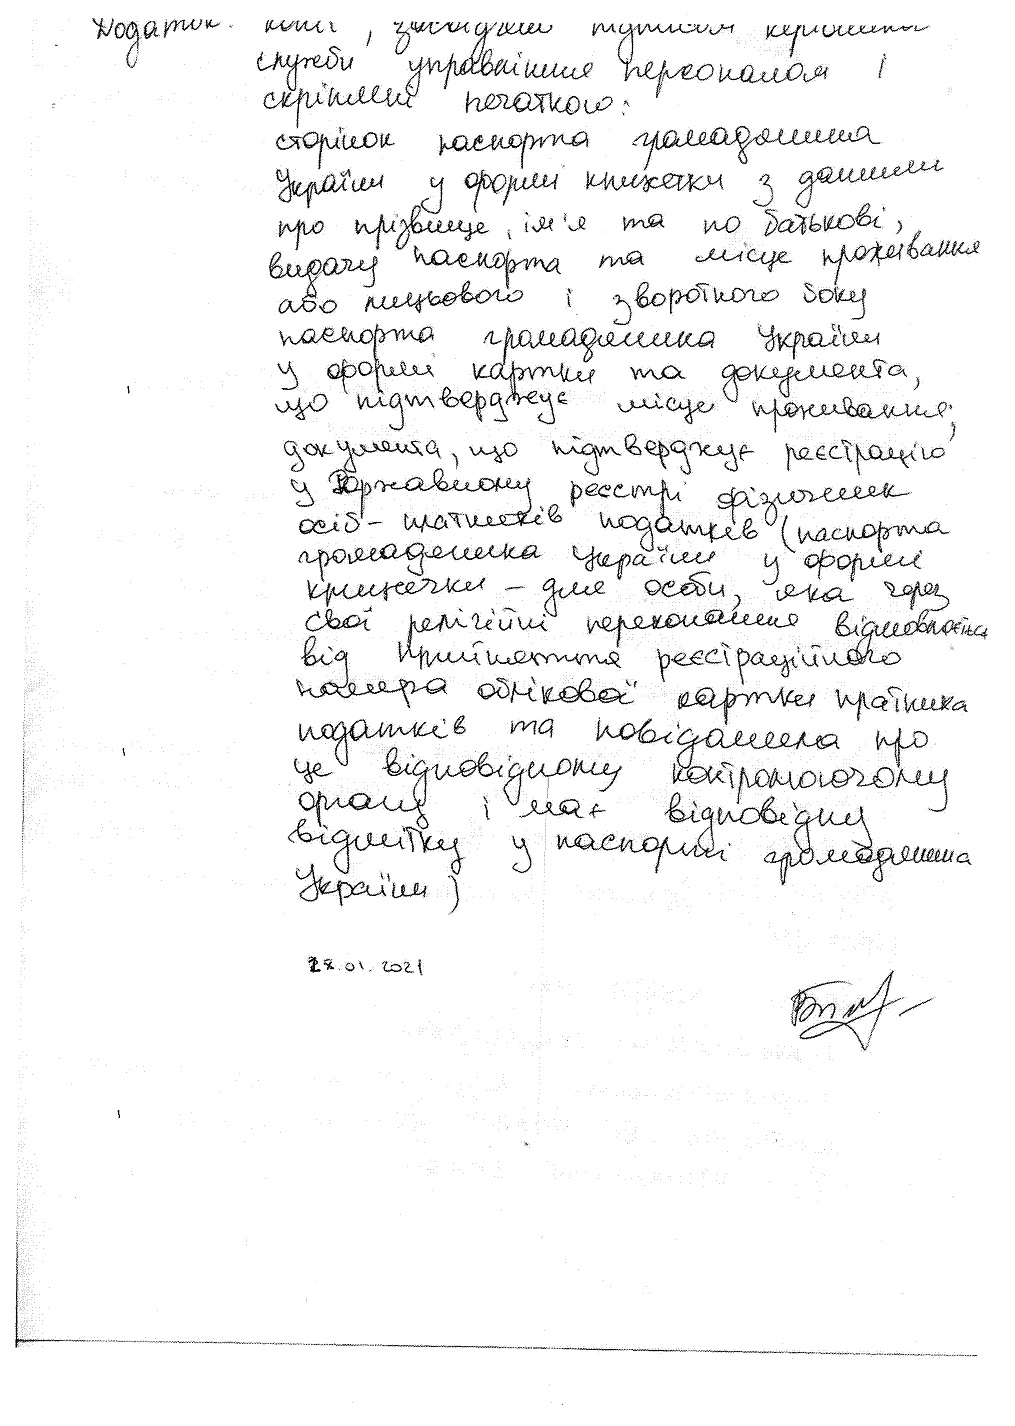 Додаток: копії, засвідчені підписом керівника
служби управління персоналом і
скріплені печаткою:
сторінок паспорта громадянина
України у формі книжечки з даними
про прізвище, ім'я та по батькові,
видачу паспорта та місце проживання
або лицьового і зворотного боку
паспорта громадянина України
у формі картки та документа,
що підтверджує місце проживання;
документа, що підтверджує реєстрацію
у Державному реєстрі фізичних
осіб - платників податків (паспорта
громадянина України у формі
книжечки - для особи, яка через
свої релігійні переконання відмовляється
від прийняття реєстраційного
номера облікової картки платника
податків та повідомила про
це відповідному контролюючому
органу і має відповідну
відмітку у паспорті громадянина
України)
28.01.2021